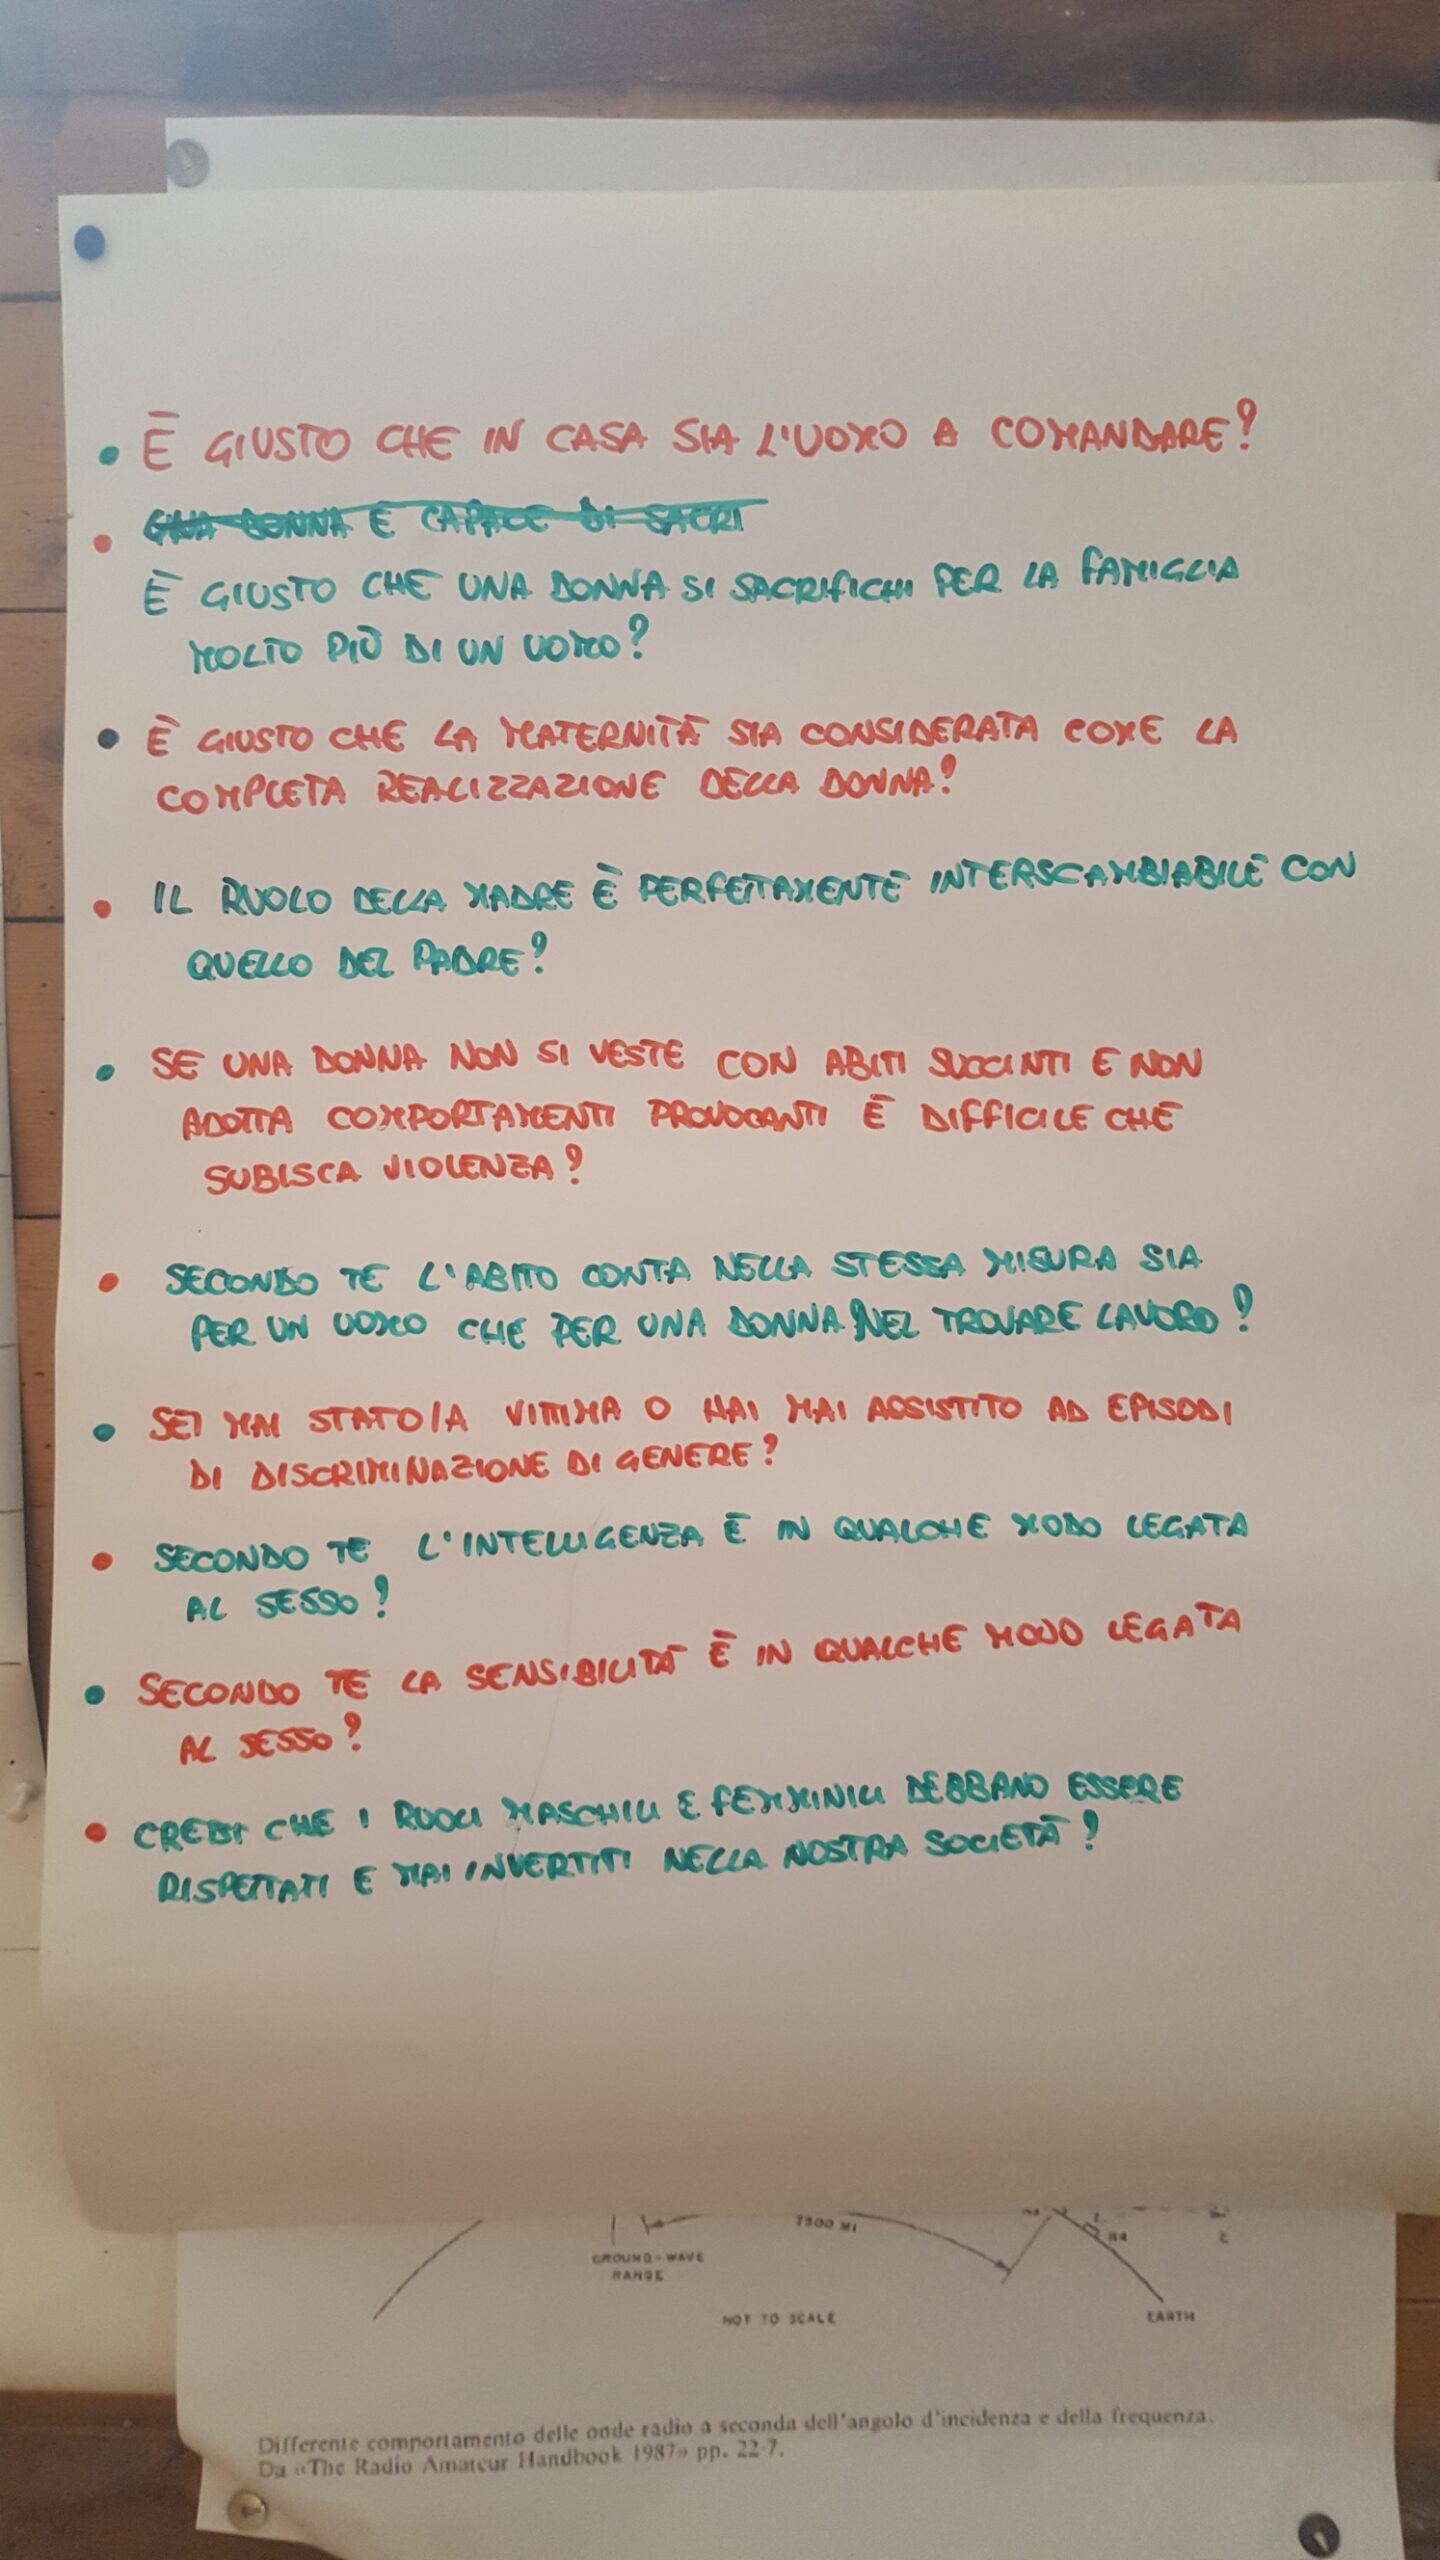 • È GIUSTO CHE IN CASA SIA L'UOMO A COMANDARE?
• DONNA È CAPACE DI SACRI
È GIUSTO CHE UNA DONNA SI SACRIFICHI PER LA FAMIGLIA
MOLTO PIÙ DI UN UOMO?
• È GIUSTO CHE LA MATERNITÀ SIA CONSIDERATA COME LA
COMPLETA REALIZZAZIONE DELLA DONNA?
• IL RUOLO DELLA MADRE È PERFETTAMENTE INTERSCAMBIABILE CON
QUELLO DEL PADRE?
• SE UNA DONNA NON SI VESTE CON ABITI SUCCINTI E NON
ADOTTA COMPORTAMENTI PROVOCANTI È DIFFICILE CHE
SUBISCA VIOLENZA?
• SECONDO TE L'ABITO CONTA NELLA STESSA MISURA SIA
PER UN UOMO CHE PER UNA DONNA NEL TROVARE LAVORO?
• SEI MAI STATO/A VITTIMA O HAI MAI ASSISTITO AD EPISODI
DI DISCRIMINAZIONE DI GENERE?
• SECONDO TE L'INTELLIGENZA È IN QUALCHE MODO LEGATA
AL SESSO?
• SECONDO TE LA SENSIBILITÀ È IN QUALCHE MODO LEGATA
AL SESSO?
• CREDI CHE I RUOLI MASCHILI E FEMMINILI DEBBANO ESSERE
RISPETTATI E MAI INVERTITI NELLA NOSTRA SOCIETÀ?
GROUND-WAVE
RANGE
NOT TO SCALE
EARTH
Differente comportamento delle onde radio a seconda dell'angolo d'incidenza e della frequenza.
Da «The Radio Amateur Handbook 1987» pp. 22-7.